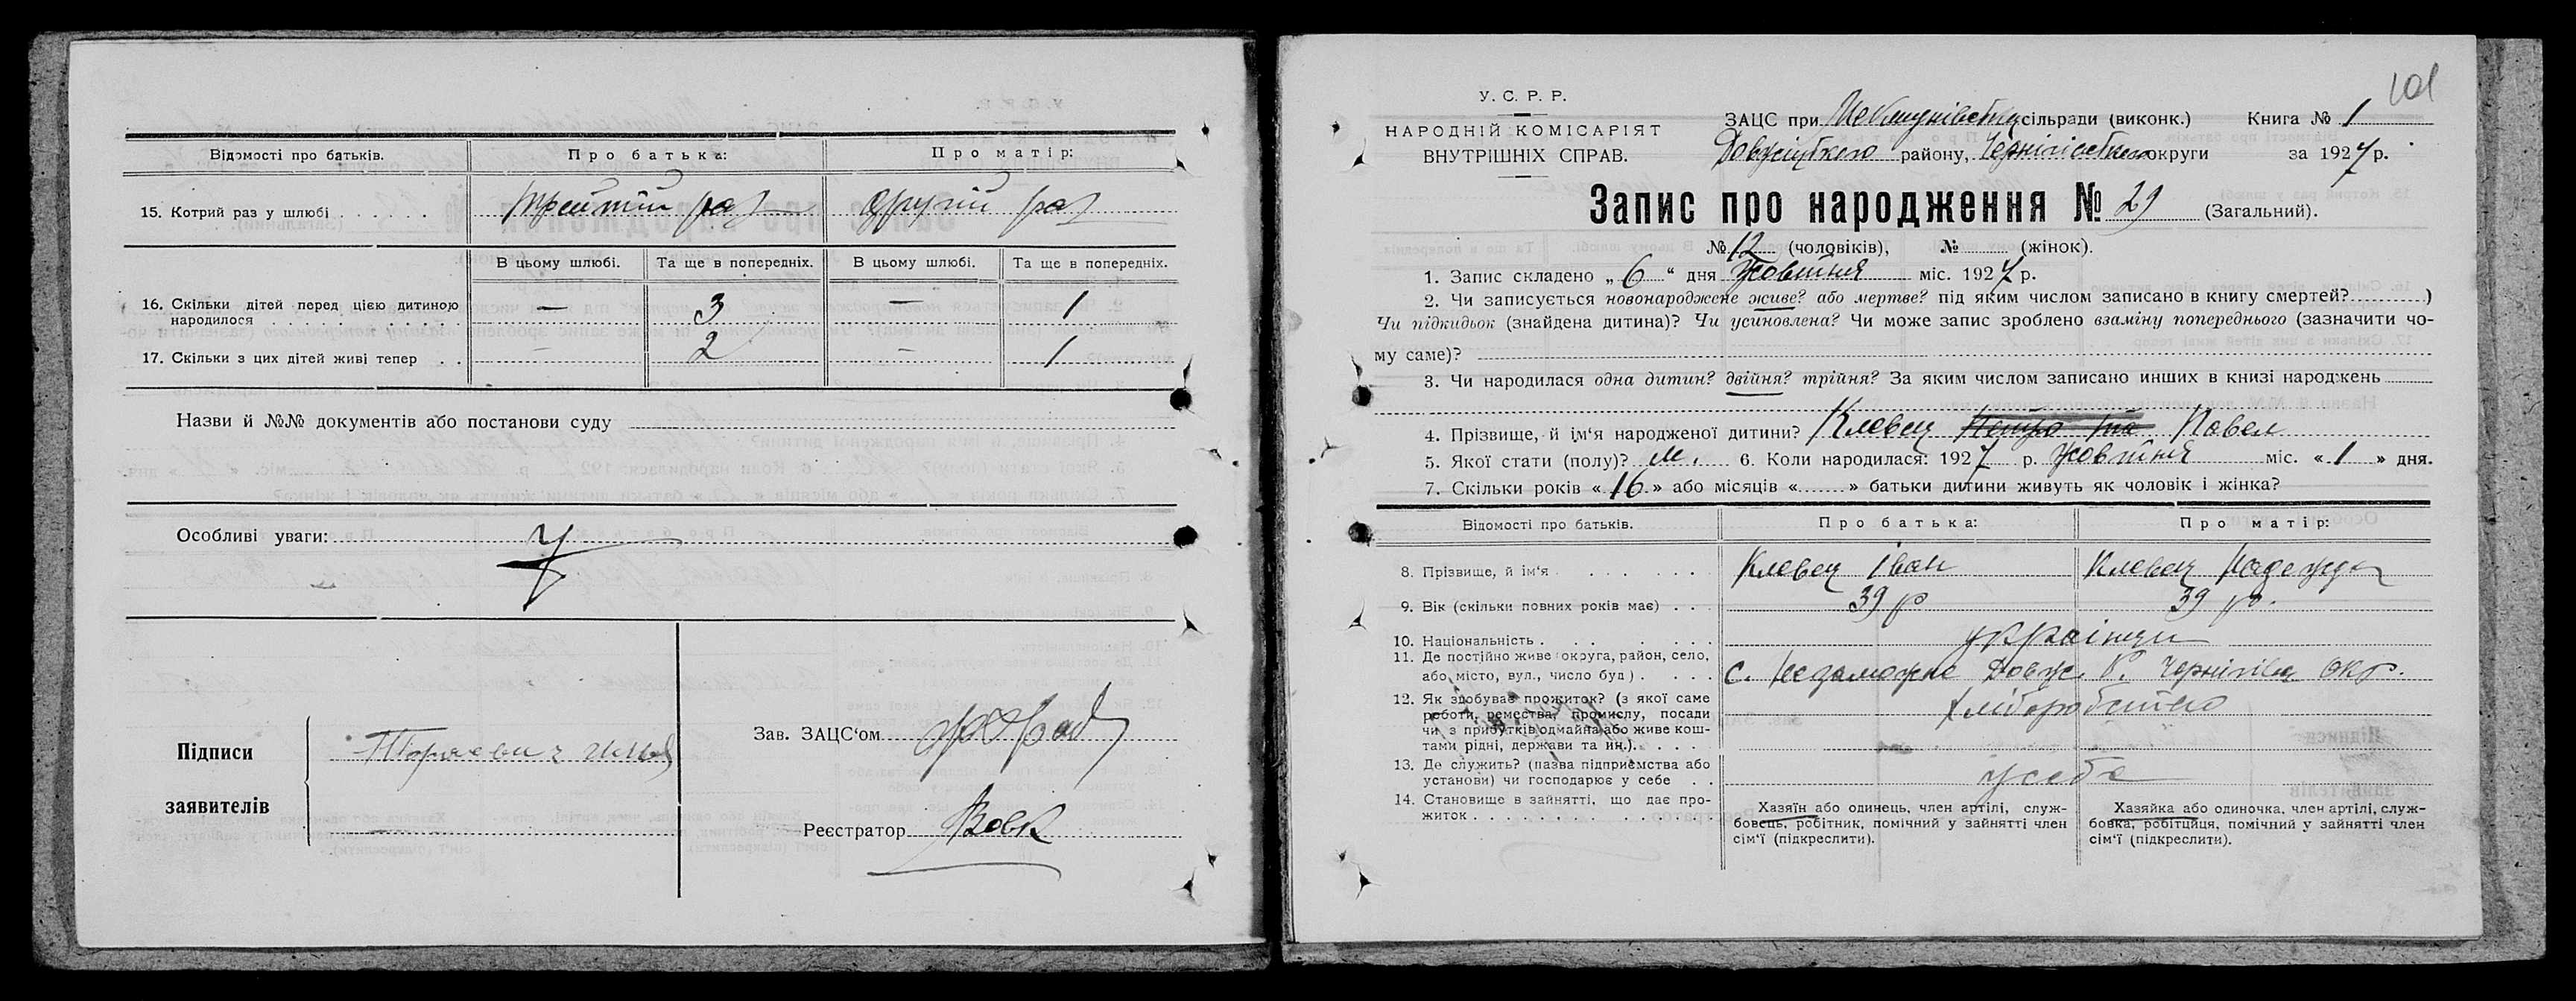 Відомості про батьків. Про батька: Про матір:
15. Котрий раз у шлюбі . . . . . . третій раз другій раз
В цьому шлюбі. Та ще в попередніх. В цьому шлюбі. Та ще в попередніх.
16. Скільки дітей перед цією дитиною
народилося . . . . . . . . . . — 3 — 1
17. Скільки з цих дітей живі тепер . . — 2 — 1
Назви й №№ документів або постанови суду
Особливі уваги:
Підписи
заявителів
Зав. ЗАЦС'ом
Реєстратор Вовк
101
У. С. Р. Р.
НАРОДНІЙ КОМІСАРІЯТ
ВНУТРІШНІХ СПРАВ.
ЗАЦС при сільради (виконк.) Книга № 1
району, Чернігівської округи за 1927 р.
Запис про народження № 29 (Загальний).
№ 12 (чоловіків), № (жінок).
1. Запис складено „ 6 “ дня Жовтня міс. 1927 р.
2. Чи записується новонароджене живе? або мертве? під яким числом записано в книгу смертей? )
Чи підкидьок (знайдена дитина)? Чи усиновлена? Чи може запис зроблено взаміну попереднього (зазначити чо-
му саме)?
3. Чи народилася одна дитин? двійня? трійня? За яким числом записано инших в книзі народжень
4. Прізвище, й ім'я народженої дитини? Клевец Павел
5. Якої стати (полу)? м. 6. Коли народилася: 1927 р. Жовтня міс. « 1 » дня.
7. Скільки років « 16 » або місяців « » батьки дитини живуть як чоловік і жінка?
Відомості про батьків. Про батька: Про матір:
8. Прізвище, й ім'я . . . . . . Клевец Іван Клевец Надежда
9. Вік (скільки повних років має) . . . 39 р 39 р.
10. Національність . . . . . . українци
11. Де постійно живе округа, район, село,
або місто, вул., число буд) . . . . с. Незаможне Довж. Р. Чернігівск. Окр.
12. Як здобуває прожиток? (з якої саме
роботи, ремества, промислу, посади хліборобство
чи з прибутків одмайна або живе кош-
тами рідні, держави та ин.). . . . .
13. Де служить? (назва підприємства або
установи) чи господарює у себе . . у себе
14. Становище в зайнятті, що дає про-
житок . . . . . . . . . . . .
Хазяїн або одинець, член артілі, служ-
бовець, робітник, помічний у зайнятті член
сім'ї (підкреслити).
Хазяйка або одиночка, член артілі, служ-
бовка, робітниця, помічний у зайнятті член
сім'ї (підкреслити).